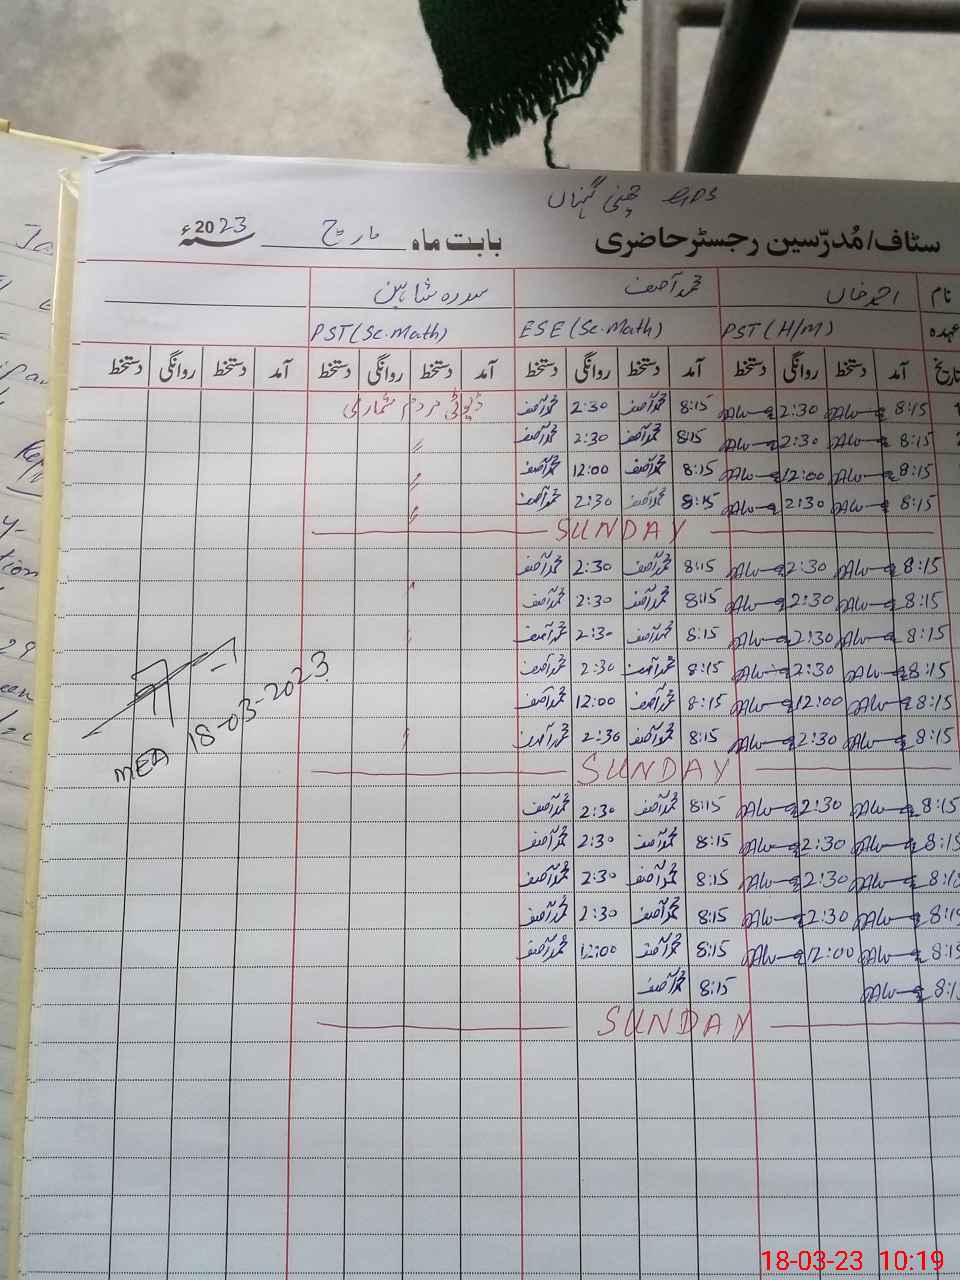 GPS چنی گہناں
سٹاف/مُدرّسین رجسٹر حاضری بابت ماہ مارچ 2023ء سنہ
نام احمد خاں محمد آصف سدرہ شاہین
عہدہ PST (H/M) ESE (Sc. Math) PST (Sc. Math)
تاریخ آمد دستخط روانگی دستخط آمد دستخط روانگی دستخط آمد دستخط روانگی دستخط آمد دستخط روانگی دستخط
8:15 2:30 8:15 محمد آصف 2:30 محمد آصف ڈیوٹی مردم شماری
8:15 2:30 8:15 محمد آصف 2:30 محمد آصف //
8:15 12:00 8:15 محمد آصف 12:00 محمد آصف //
8:15 2:30 8:15 محمد آصف 2:30 محمد آصف //
SUNDAY
8:15 2:30 8:15 محمد آصف 2:30 محمد آصف
8:15 2:30 8:15 محمد آصف 2:30 محمد آصف
8:15 2:30 8:15 محمد آصف 2:30 محمد آصف
8:15 2:30 8:15 محمد آصف 2:30 محمد آصف
8:15 12:00 8:15 محمد آصف 12:00 محمد آصف
8:15 2:30 8:15 محمد آصف 2:30 محمد آصف
SUNDAY
8:15 2:30 8:15 محمد آصف 2:30 محمد آصف
8:15 2:30 8:15 محمد آصف 2:30 محمد آصف
8:15 2:30 8:15 محمد آصف 2:30 محمد آصف
8:15 2:30 8:15 محمد آصف 2:30 محمد آصف
8:15 12:00 8:15 محمد آصف 12:00 محمد آصف
8:15 8:15 محمد آصف
SUNDAY
MEA 18-03-2023
18-03-23 10:19